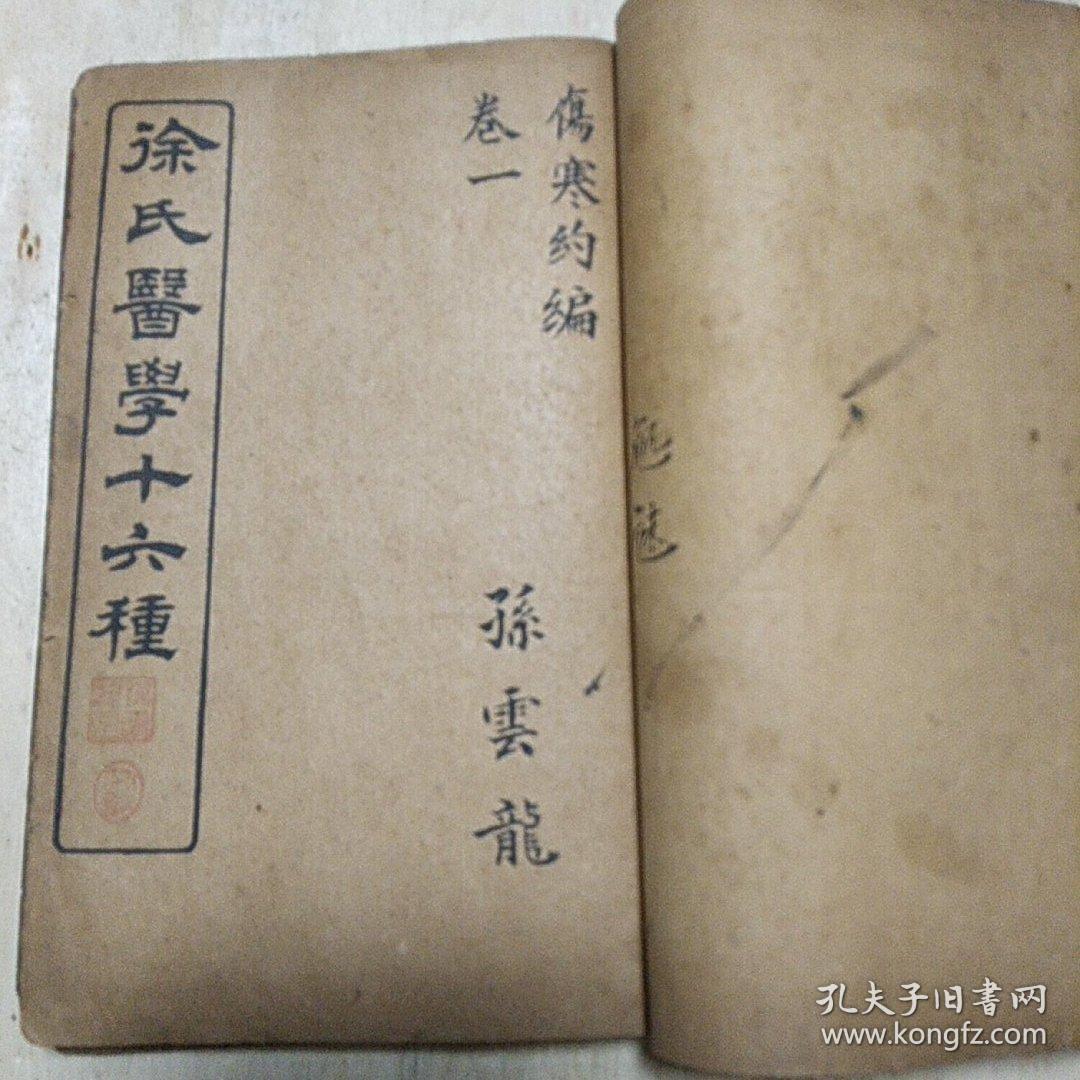 傷寒约编
卷一
孫雲龍
徐氏醫學十六種
孔夫子旧书网
www.kongfz.com